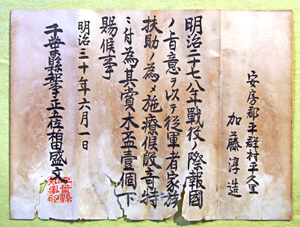 安房郡平群村平久里
加藤淳造
明治二十七八年戦役ノ際報國
ノ旨意ヲ以テ従軍者家族
扶助ノ為メ施療候段奇特
ニ付為其賞木盃壹個下
賜候事
明治三十年六月一日
千葉縣知事正五位